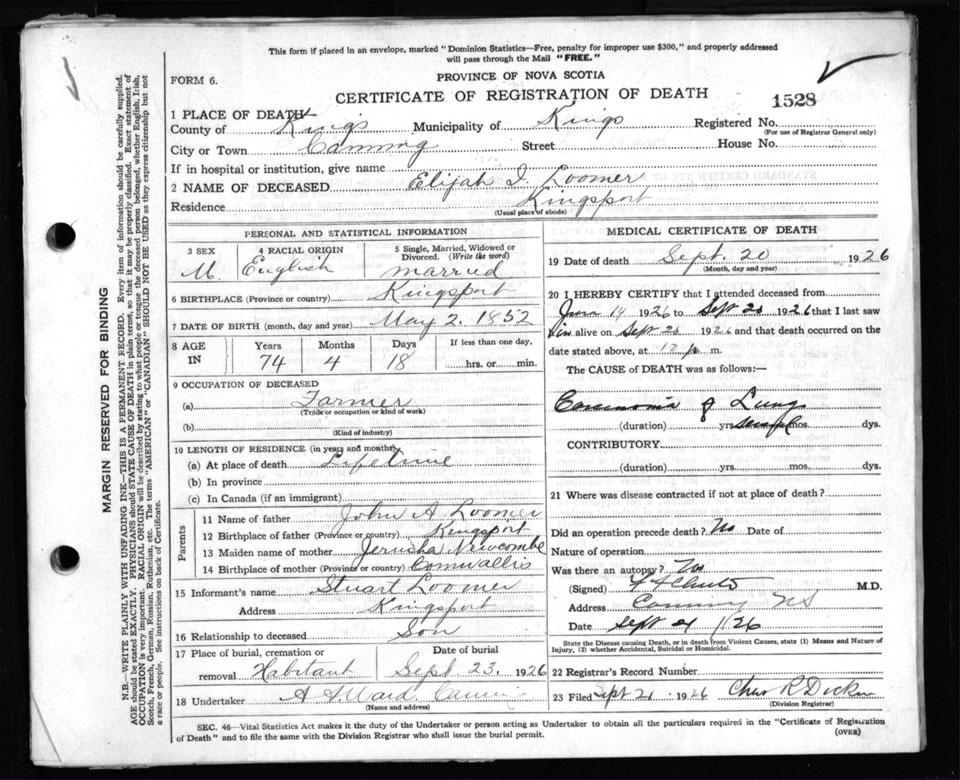 This form if placed in an envelope, marked "Dominion Statistics—Free, penalty for improper use $300," and properly addressed
will pass through the Mail "FREE."
FORM 6.
PROVINCE OF NOVA SCOTIA
CERTIFICATE OF REGISTRATION OF DEATH
1528
1 PLACE OF DEATH
County of Kings Municipality of Kings Registered No.
(For use of Registrar General only)
City or Town Canning Street House No.
If in hospital or institution, give name
2 NAME OF DECEASED Elijah I. Loomer
Residence Kingsport
(Usual place of abode)
PERSONAL AND STATISTICAL INFORMATION
3 SEX 4 RACIAL ORIGIN 5 Single, Married, Widowed or Divorced. (Write the word)
M. English married
6 BIRTHPLACE (Province or country) Kingsport
7 DATE OF BIRTH (month, day and year) May 2. 1852
8 AGE IN Years Months Days If less than one day,
74 4 18 hrs. or min.
9 OCCUPATION OF DECEASED
(a) Farmer
(Trade or occupation or kind of work)
(b)
(Kind of industry)
10 LENGTH OF RESIDENCE (in years and months)
(a) At place of death Lifetime
(b) In province
(c) In Canada (if an immigrant)
Parents
11 Name of father John A. Loomer
12 Birthplace of father (Province or country) Kingsport
13 Maiden name of mother Jerusha Newcombe
14 Birthplace of mother (Province or country) Cornwallis
15 Informant's name Stuart Loomer
Address Kingsport
16 Relationship to deceased Son
17 Place of burial, cremation or removal Date of burial
Habitant Sept 23. 1926
18 Undertaker Ward
(Name and address)
MEDICAL CERTIFICATE OF DEATH
19 Date of death Sept. 20 1926
(Month, day and year)
20 I HEREBY CERTIFY that I attended deceased from
June 14 1926 to Sept 20 1926 that I last saw
him alive on Sept 20 1926 and that death occurred on
date stated above, at 12 p m.
The CAUSE of DEATH was as follows:—
Carcinoma of Lungs
(duration) yrs. mos. dys.
CONTRIBUTORY
(duration) yrs. mos. dys.
21 Where was disease contracted if not at place of death?
Did an operation precede death? No Date of
Nature of operation
Was there an autopsy? No
(Signed) M.D.
Address Canning NS
Date Sept 21 1926
State the Disease causing Death, or in death from Violent Causes, state (1) Means and Nature of
Injury, (2) whether Accidental, Suicidal or Homicidal.
22 Registrar's Record Number
23 Filed Sept 21 1926 Chas R Dickie
(Division Registrar)
SEC. 46—Vital Statistics Act makes it the duty of the Undertaker or person acting as Undertaker to obtain all the particulars required in the "Certificate of Registration
of Death" and to file the same with the Division Registrar who shall issue the burial permit.
(OVER)
MARGIN RESERVED FOR BINDING
N.B.—WRITE PLAINLY WITH UNFADING INK—THIS IS A PERMANENT RECORD. Every item of information should be carefully supplied.
AGE should be stated EXACTLY. PHYSICIANS should STATE CAUSE OF DEATH in plain terms, so that it may be properly classified. Exact statement of
OCCUPATION is very important. RACIAL ORIGIN will be described by stating to what people or tongue the deceased person belonged, whether English, Irish,
Scotch, French, German, Russian, Ruthenian, etc. The terms "AMERICAN" or "CANADIAN" SHOULD NOT BE USED as they express citizenship but not
a race or people. See instructions on back of Certificate.